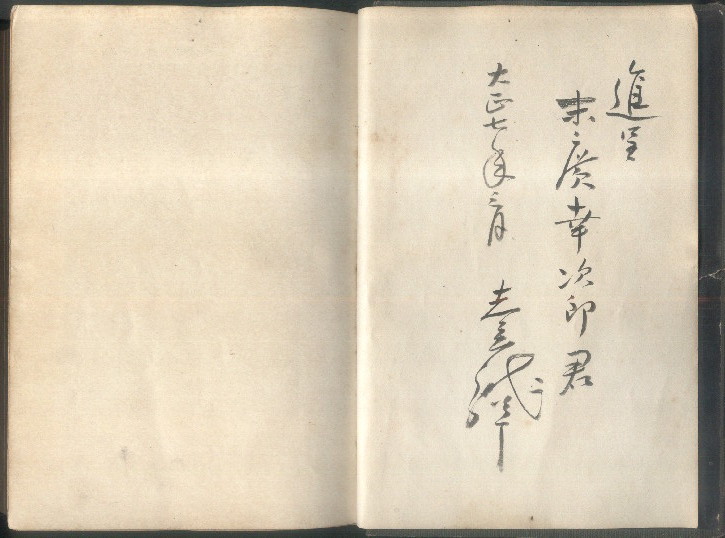 進呈
末廣幸次郎君
大正七年三月